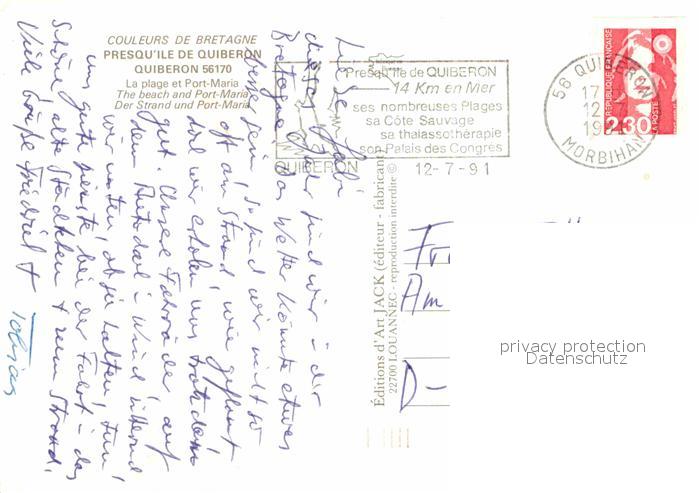 COULEURS DE BRETAGNE
PRESQU'ILE DE QUIBERON
QUIBERON 56170
La plage et Port-Maria
The beach and Port-Maria
Der Strand und Port-Maria
Presqu'ile de QUIBERON
14 Km en Mer
ses nombreuses Plages
sa Côte Sauvage
sa thalassothérapie
son Palais des Congrès
QUIBERON
12-7-91
56 QUIBERON
17
12-7
MORBIHAN
REPUBLIQUE FRANÇAISE
2,30
LA POSTE
Liebe Gabi
dieses Jahr sind wir in der
Bretagne. Das Wetter könnte etwas
besser sein, so sind wir nicht so
oft am Strand, wie geplant
doch wir erholen uns trotzdem
gut. Unsere Fahrräder, auf
dem Autodach im Wind zitternd
wir, ob sie halten, tun
uns gute Dienste bei der Fahrt in das
Schöne alte Städtchen + zum Strand.
Viele Grüße Friedrich +
Tobias
Editions d'Art JACK (éditeur - fabricant)
22700 LOUANNEC - reproduction interdite ©
Am
D-
privacy protection
Datenschutz